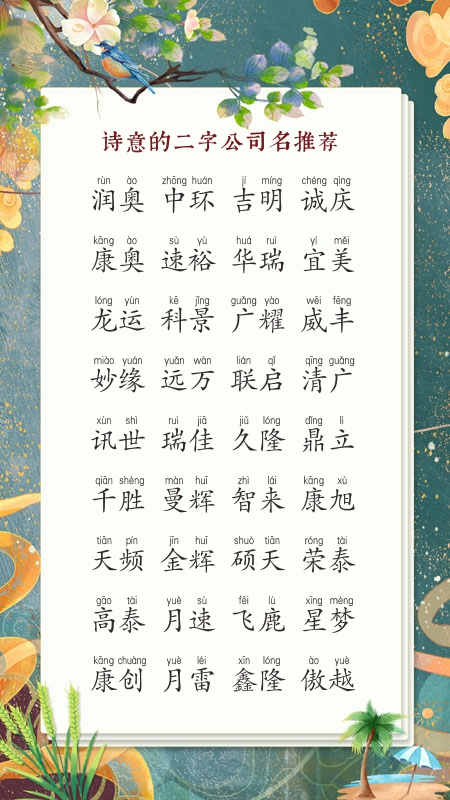 诗意的二字公司名推荐
rùn ào zhōng huán jí míng chéng qìng
润奥 中环 吉明 诚庆
kāng ào sù yù huá ruì yí měi
康奥 速裕 华瑞 宜美
lóng yùn kē jǐng guǎng yào wēi fēng
龙运 科景 广耀 威丰
miào yuán yuǎn wàn lián qǐ qīng guǎng
妙缘 远万 联启 清广
xùn shì ruì jiā jiǔ lóng dǐng lì
讯世 瑞佳 久隆 鼎立
qiān shèng màn huī zhì lái kāng xù
千胜 曼辉 智来 康旭
tiān pín jīn huī shuò tiān róng tài
天频 金辉 硕天 荣泰
gāo tài yuè sù fēi lù xīng mèng
高泰 月速 飞鹿 星梦
kāng chuàng yuè léi xīn lóng ào yuè
康创 月雷 鑫隆 傲越